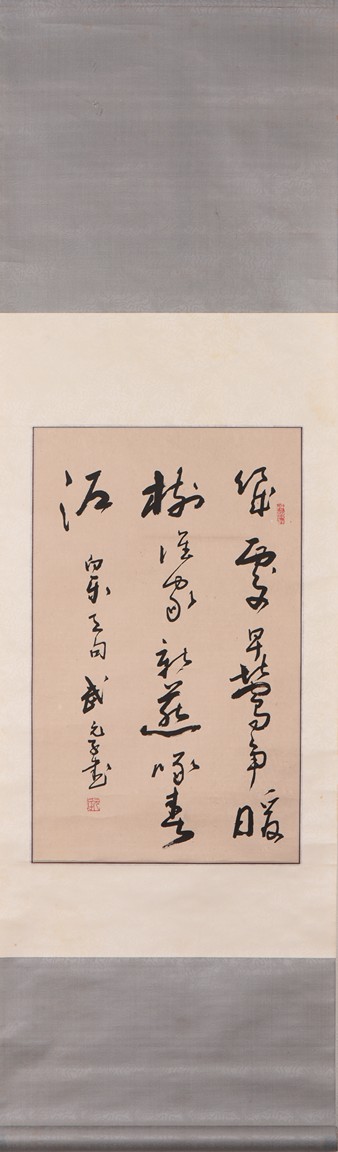 几處早鶯爭暖
樹誰家新燕啄春
泥
白樂天句 武元子書